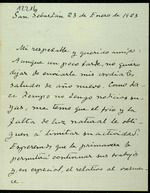 San Sebastián 23 de Enero de 1923
Mi respetable y querido amigo:
Aunque un poco tarde, no quiero
dejar de enviarle mis cordiales
saludos de año nuevo. Como
tiempo no tengo noticias
me temo que el frío y la
falta de luz natural le obli
guen a limitar su actividad.
Esperando que la primavera le
permitirá continuar sus trabajos
y, en especial, el relativo al